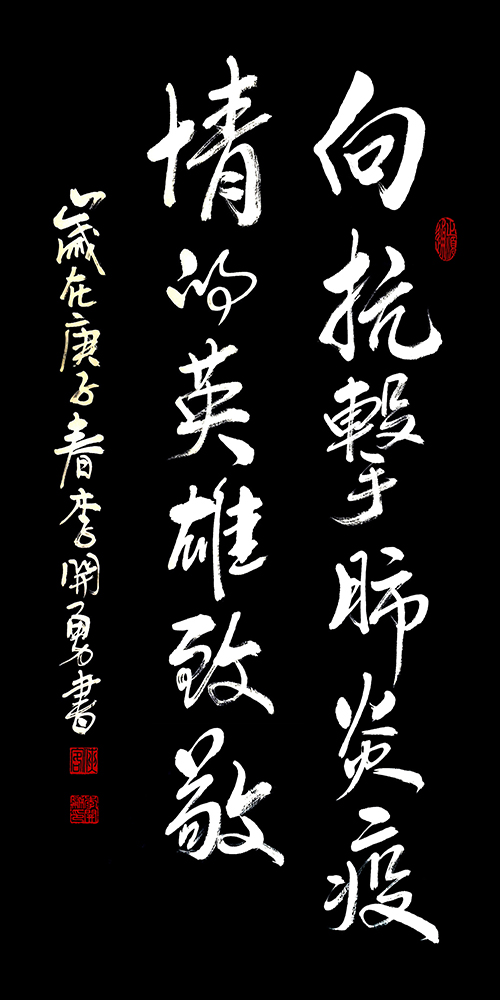 向抗擊肺炎疫
情的英雄致敬
歲在庚子春李開勇書